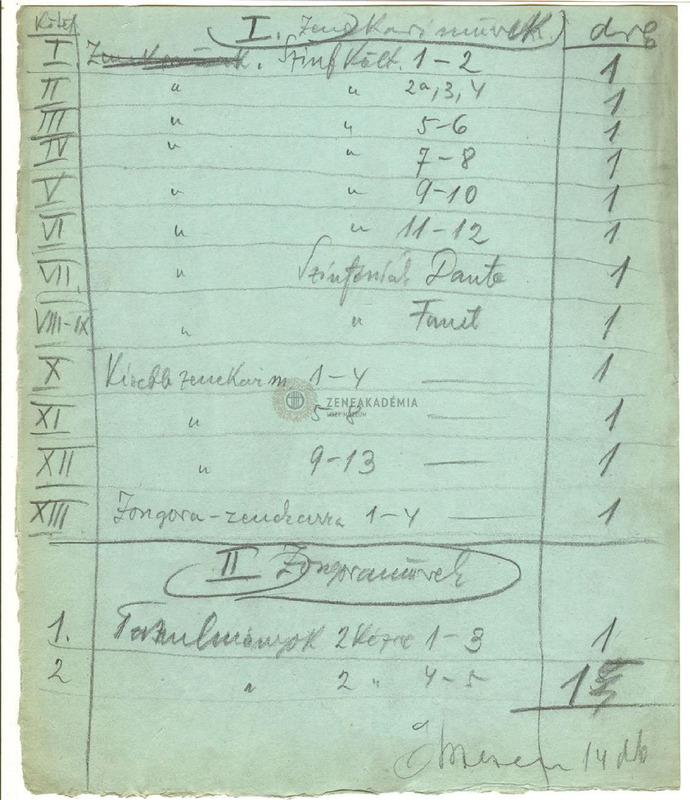 Kötet I. Zenekari művek. drb
I Szinf Költ. 1-2 1
II " " 2a, 3, 4 1
III " " 5-6 1
IV " " 7-8 1
V " " 9-10 1
VI " " 11-12 1
VII. " Szinfóniák Dante 1
VIII-IX " " Faust 1
X Kisebb zenekari m. 1-4 — 1
ZENEAKADÉMIA
XI " 5-8 — 1
LISZT MÚZEUM
XII " 9-13 — 1
XIII Zongora-zenekarra 1-4 — 1
II Zongoraművek
1. Tanulmányok 2 kézre 1-3 1
2 " 2 " 4-5 1
14 db